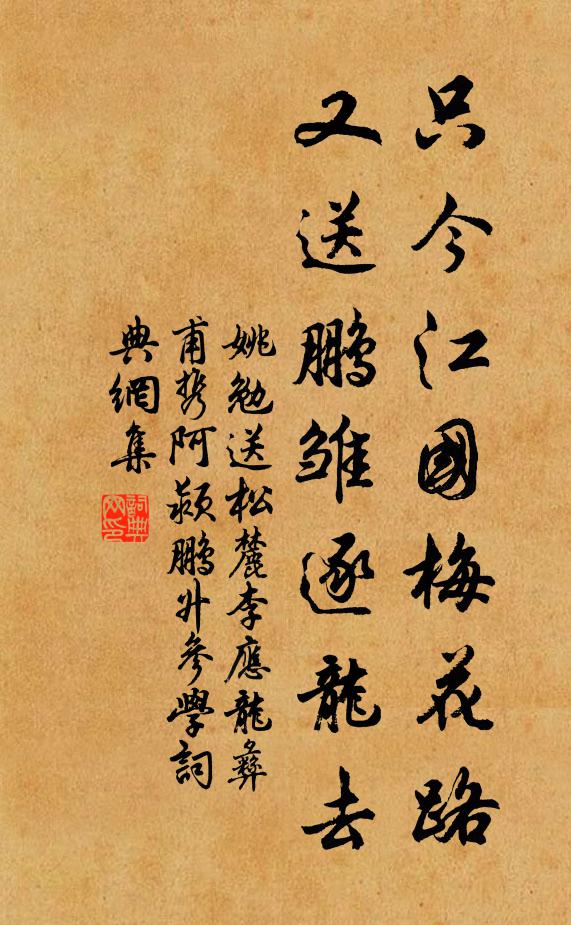 只今江國梅花路
又送鵬雏逐龍去
姚勉送松麓李應龍彝
甫携阿颍鵬升參學詞
典網集
詞典
网印